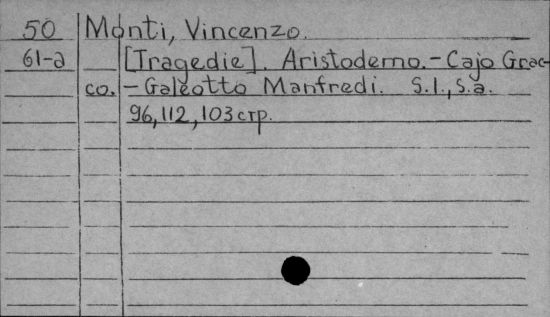 50 Monti, Vincenzo.
61-a [Tragedie]. Aristodemo.-Cajo Grac-
co.-Galeotto Manfredi. S.l., s.a.
96, 112, 103 стр.